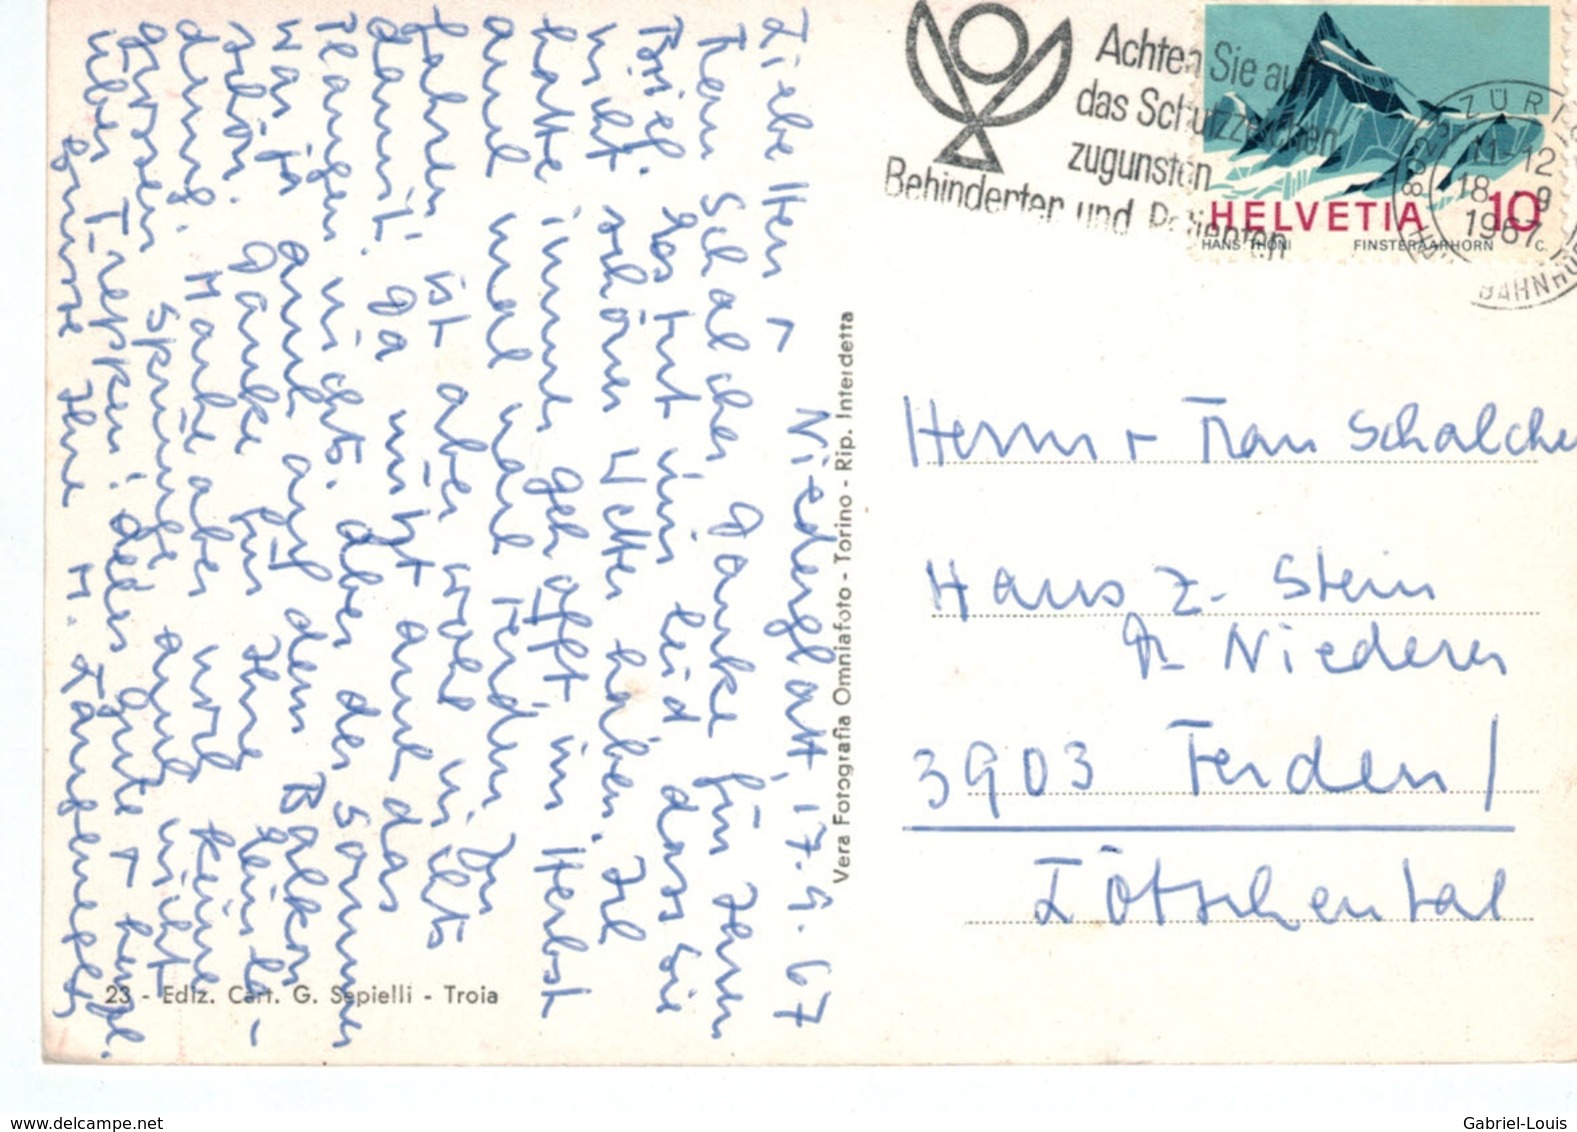 Niederglatt, 17.9.67
Liebe Herr +
Frau Schalcher, Danke für Ihren
Brief. Es tut mir leid dass Sie
nicht schönes Wetter haben. Ich
hatte immer gehofft im Herbst
auch mal nach Ferden zu
fahren ist aber wohl nichts
damit. Da nützt auch das
Plangen nichts. Aber der Sommer
war ja auch auf dem Balkon
schön. Danke für Ihre Einla-
dung. Mache aber noch keine
grossen Sprünge auch nicht
über Treppen! Alles Gute + herzl.
Grüsse Ihre M.
Achten Sie auf
das Schutzzeichen
zugunsten
Behinderter und Patienten
HELVETIA 10
HANS THÖNI FINSTERAARHORN
ZÜRICH
11-12
18.  9
1967
BAHNHOF
Herrn + Frau Schalcher
Haus z. Stein
Niederer
3903 Ferden /
Lötschental
Vera Fotografia Omniafoto - Torino - Rip. Interdetta
23 - Ediz. Cart. G. Sepielli - Troia
www.delcampe.net
Gabriel-Louis